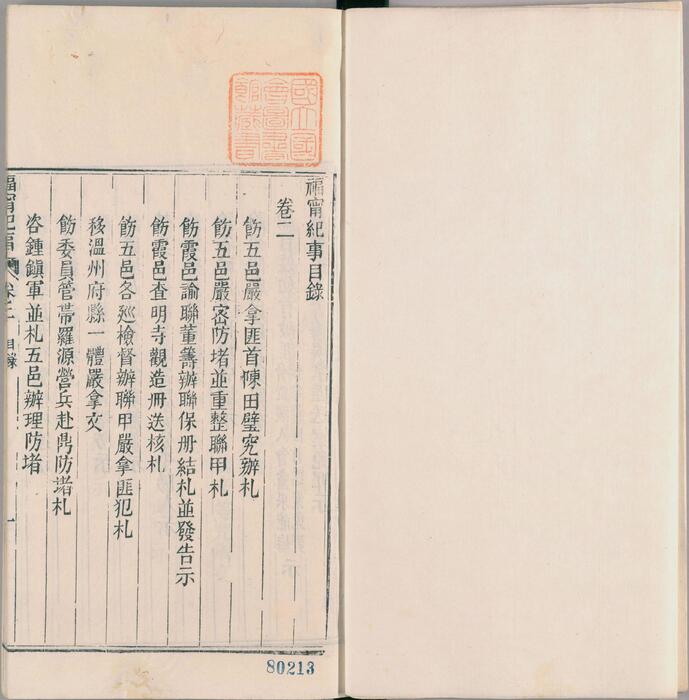 國立國
會圖書
館藏書
福甯紀事目錄
卷二
飭五邑嚴拿匪首陳田璧究辦札
飭五邑嚴密防堵並重整聯甲札
飭霞邑諭聯董籌辦聯保册結札並發告示
飭霞邑查明寺觀造册送核札
飭五邑各巡檢督辦聯甲嚴拿匪犯札
移溫州府縣一體嚴拿文
飭委員管帶羅源營兵赴鼎防堵札
咨鍾鎭軍並札五邑辦理防堵
福甯紀事
卷二 目錄
一
80213